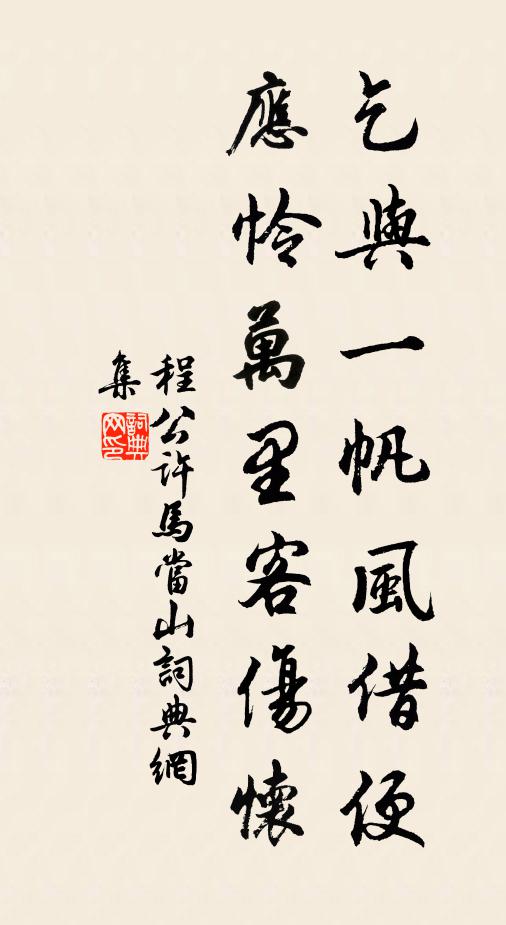 乞與一帆風借便
應憐萬里客傷懷
程公許馬當山詞典網
集
詞典網印